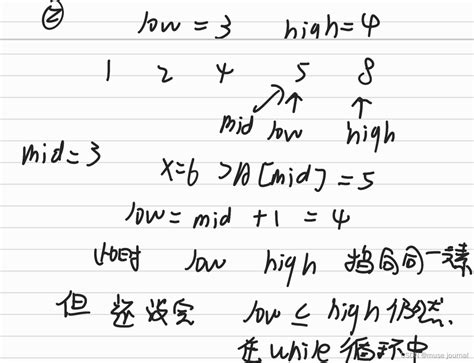 ② low = 3 high = 4
1 2 4 5 8
mid low high
mid = 3
x = 6 > A[mid] = 5
low = mid + 1 = 4
此时 low high 指向同一元素
但还没完 low ≤ high 仍然
在 while 循环中
CSDN @muse journal